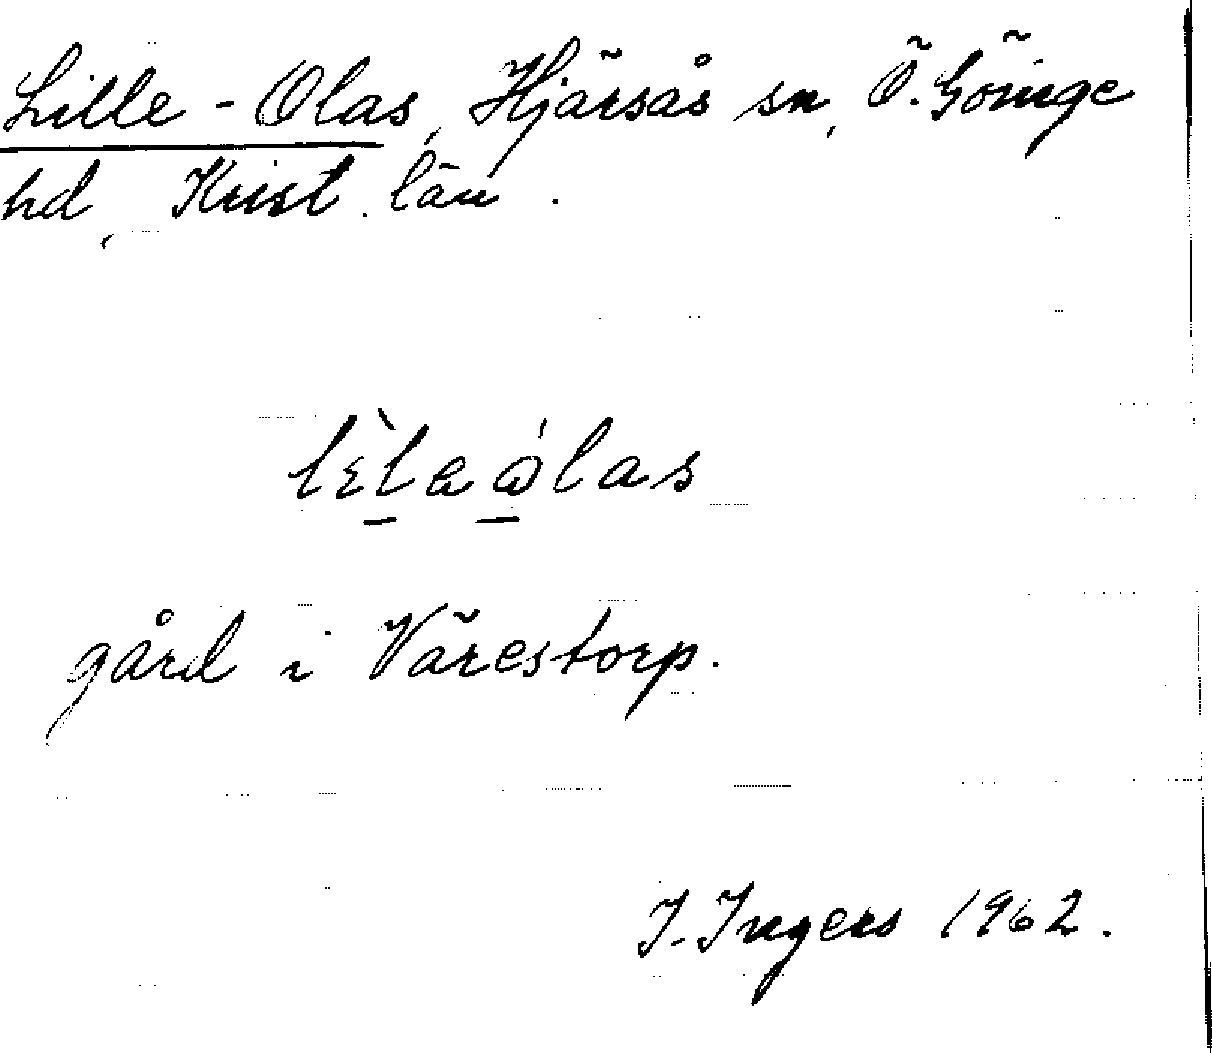 Lille-Olas, Hjärsås sn, Ö. Göinge
hd, Krist. län.
lɛ̀la ώ̨las
gård i Värestorp.
I. Ingers 1962.